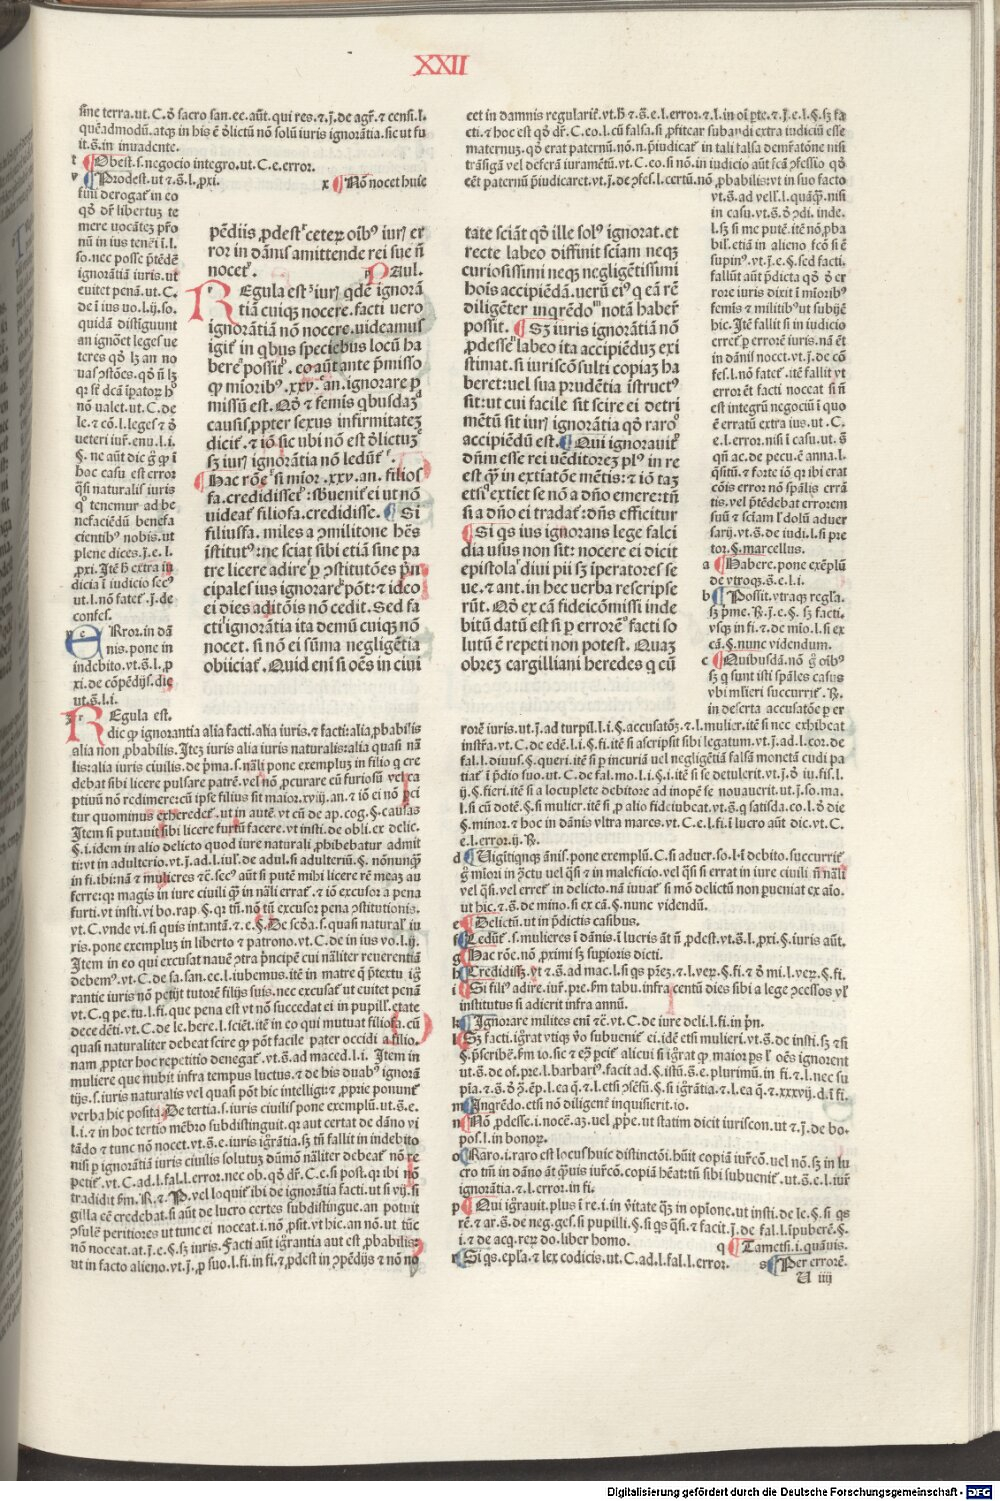 XXII
sine terra.ut.C.ð sacro san.ee.aūt.qui res.⁊.j.de agr̄.⁊ censi.l.
quēadmodū.atqꝫ in his ē ðlictū nō solū iuris ignorātia.sic ut fu
it.s̄.in inuadente.
t Obest.s.negocio integro.ut.C.e.error.
v Prodest.ut ⁊.s̄.l.ꝓxi.
x Nō nocet huic
fuit derogat᷑ in eo
qð dr̄ libertuꝫ te
mere uocāteꝫ pr̄o
nū in ius teneri ī.l.
so.nec posse p̄tēdē
ignorātiā iuris.ut
euitet penā.ut.C.
de ī ius uo.l.ij.so.
quidā distīguunt
an ignōet leges ue
teres qð lꝫ an no
uas ꝯstōes.qð n̄ lꝫ
nō ualet.ut.C.de
le.⁊ cō.l.leges ⁊ ð
ueteri iur̄.enu.l.i.
hoc casu est error
qsi naturalis iuris
tenemur ad be
nefaciēdū benefa
cientibꝰ nobis.ut
plene dices.j.e.l.
ꝓxi.Itē h̄ extra iu
dicia ī iudicio secꝰ
ut.l.nō fatet᷑.j.de
confes.
y Error.in dā
nis.pone in
indebito.vt.s̄.l.ꝓ
xi.de cōpēdijs.dic
ut.s̄.l.i.
pēdijs ꝓdest᷑ ceteꝝ oībꝰ iurꝭ er
ror in dānis amittende rei sue n̄
nocet᷑. Paul.
Regula est ꝫ iurꝭ qdē ignorā
tiā cuiqꝫ nocere.facti uero
ignorātiā nō nocere.uideamus
igit᷑ in qbus speciebus locū ha
bere possit᷑.co aūt ante p̄misso
ꝙ mioribꝰ.xxv.an.ignorare ꝑ
missū est.Qð ⁊ femis qbusdaꝫ
causis ꝓpter sexus infirmitateꝫ
dicit᷑.⁊ iō sic ubi nō est ðlictuꝫ
sꝫ iurꝭ ignorātia nō ledūt᷑.
Hac rōe si mior.xxv.an.filiof
fa.credidisset᷑:sbuenit᷑ ei ut nō
uideat᷑ filiofa.credidisse. Si
filiusfa.miles a ꝯmilitone hēs
īstitutꝰ:ne sciat sibi etiā sine pa
tre licere adire ꝑ ꝯstitutōes p̄n
cipales ius ignorare pōt:⁊ ideo
ei dies aditōis nō cedit.Sed fa
cti ignorātia ita demū cuiqꝫ nō
nocet.si nō ei sūma negligētia
obiiciat᷑.Quid enī si oēs in ciui
tate sciāt qð ille solꝰ ignorat.et
recte labeo diffinit sciam neqꝫ
curiosissimi neqꝫ negligētissimi
hois accipiēdā.uerū eiꝰ q eā rē
diligēter inqrēdo notā haber̄
possit. Sꝫ iuris ignorātiā nō
ꝓdesse labeo ita accipiēduꝫ exi
stimat.si iuriscōsulti copiaꝫ ha
beret:uel sua prudētia istructꝰ
sit:ut cui facile sit scire ei detri
mētū sit iurꝭ ignorātia qð raro
accipiēdū est. Qui ignorauit᷑
dn̄m esse rei uēditoreꝫ plꝰ in re
est qꝫ in extiatōe mētis:⁊ iō taꝫ
etsi extiet se nō a dn̄o emere:tn̄
si a dn̄o ei tradat᷑:dn̄s efficitur
Si qs ius ignorans lege falci
dia usus non sit: nocere ei dicit
epistola diui pii sꝫ īperatores se
ue.⁊ ant.in hec uerba rescripse
rūt.Qð ex cā fideicōmissi inde
bitū datū est si ꝑ errorē facti so
lutū ē repeti non potest.Quaꝫ
obreꝫ cargilliani heredes q cū
eet in damnis regularit᷑.vt.h̄ ⁊.s̄.e.l.error.⁊.l.in oī ꝑte.⁊.j.e.l.§.sꝫ fa
cti.⁊ hoc est qð dr̄.C.co.l.cū falsa.si ꝓfitear subaudi extra iudiciū esse
maternuꝫ.qð erat paternū.nō.n.p̄iudicat᷑ in tali falsa demr̄atōne nisi
trāsigā vel deferā iuramētū.vt.C.eo.si nō.in iudicio aūt fcā ꝯfessio qð
eēt paternū p̄iudicaret.vt.j.de ꝯfes.l.certū.nō ꝓbabilis:vt in suo facto
vt.s̄.ad vell᷑.l.quāqꝫ.nisi
in casu.vt.s̄.ð ꝯdi.inde.
l.sꝫ si me putē.itē nō ꝓba
bil᷑.etiā in alieno fcō si ē
supinꝰ.vt.j.e.§.sed facti.
fallūt aūt p̄dicta qð ð er
rore iuris dixit ī mioribꝰ
femis ⁊ militibꝰ ut subijtē
hic.Itē fallit si in iudicio
erret᷑ ꝑ errorē iuris.nā ēt
in dānis nocet.vt.j.de cō
fes.l.nō fatet᷑.itē fallit vt
error ēt facti noceat si n̄
est integrū negociū ī quo
ē erratū extra ius.ut.C.
e.l.error.nisi ī casu.ut.s̄
qn̄ ac.de pecu.ē annal.l.
qsitū.⁊ forte iō qꝛ ibi erat
cōis error nō spālis errā
tis.vel p̄tēdebat errorem
suū ⁊ sciam l᷑ dolū aduer
sarij.vt.s̄.de iudi.l.si pre
tor.§.marcellus.
a Habere.pone exēplū
de vtroqꝫ.s̄.e.l.i.
b Possit.vtraqꝫ regl̄a.
sꝫ p̄me.℟.j.e.§.sꝫ facti.
vsqꝫ in fi.⁊.de mio.l.si ex
cā.§.nunc videndum.
c Quibusdā.nō ḡ oībꝰ
sꝫ q sunt isti spāles casus
vbi mulieri succurrit᷑.℟.
in deserta accusatōe ꝑ er
z Regula est.
dic ꝙ ignorantia alia facti.alia iuris.⁊ facti:alia ꝓbabilis
alia non ꝓbabilis.Iteꝫ iuris alia iuris naturalis:alia quasi nā
lis:alia iuris ciuilis.de p̄ma.s.nāli pone exempluꝫ in filio q cre
debat sibi licere pulsare patrē.vel nō ꝓcurare cū furiosū vel ca
ptiuū nō redimere:cū ipse filius sit maior.xvij.an.⁊ iō ei nō pci
tur quominus exheredet᷑.ut in autē.vt cū de ap.cog.§.causas
Item si putauit sibi licere furtū facere.vt insti.de obli.ex delic.
§.i.idem in alio delicto quod iure naturali ꝓhibebatur admit
ti:vt in adulterio.vt.j.ad.l.iul᷑.de adul.si adulteriū.§.nōnunqꝫ
in fi.ibi:nā ⁊ mulieres ⁊c̄.secꝰ aūt si putē mihi licere rē meaꝫ au
ferre:qꝛ magis in iure ciuili qꝫ in nāli errat᷑.⁊ iō excusor a pena
furti.vt insti.vi bo.rap.§.qꝛ tn̄.nō tn̄ excusor pena ꝯstitutionis.
vt.C.vnde vi.si quis intantā.⁊.e.§.De scōa.s.quasi natural᷑ iu
ris.pone exempluꝫ in liberto ⁊ patrono.vt.C.de in ius vo.l.ij.
Item in eo qui excusat nauē ꝯtra p̄ncipē cui nāliter reuerentiā
debemꝰ.vt.C.de sa.san.ec.l.iubemus.itē in matre q p̄textu ig
rantie iuris nō petijt tutorē filijs suis.nec excusat᷑ ut euitet penā
vt.C.q pe.tu.l.fi.que pena est vt nō succedat ei in pupill᷑.etate
decedēti.vt.C.de le.here.l.sciēt.itē in eo qui mutuat filiofa.cū
quasi naturaliter debeat scire ꝙ pōt facile pater occidi a filio.
nam ꝓpter hoc repetitio denegat᷑.vt.s̄.ad maced.l.i. Item in
muliere que nubit infra tempus luctus.⁊ de his duabꝰ ignorā
tijs.s.iuris naturalis vel quasi pōt hic intelligi:⁊ ꝓprie ponunt᷑
verba hic posita.De tertia.s.iuris ciuilis pone exemplū.ut.s̄.e.
l.i.⁊ in hoc tertio mēbro subdistinguit.qꝛ aut certat de dāno vi
tādo ⁊ tunc nō nocet.vt.s̄.e.iuris igr̄atia.sꝫ tn̄ fallit in indebito
nisi ꝑ ignorātiā iuris ciuilis solutuꝫ dūmō nāliter debeat᷑ nō re
petit᷑.vt.C.ad.l.fal.l.error.nec ob.qð dr̄.C.e.si post.qꝛ ibi nō
tradidit ẜm.℟.⁊.P.vel loquit᷑ ibi de ignorātia facti.ut si vij.si
gilla eē credebat.si aūt de lucro certes subdistingue.an potuit
ꝯsulē peritiores ut tunc ei noceat.i.nō ꝓsit.vt hic.an nō.ut tūc
nō noceat.at.j.e.§.sꝫ iuris.Facti aūt igr̄antia aut est ꝓbabilis:
ut in facto alieno.vt.j.ꝓ suo.l.fi.in fi.⁊ ꝓdest in ꝯpēdijs ⁊ nō no
rorē iuris.ut.j.ad turpil.l.i.§.accusatōꝫ.⁊.l.mulier.itē si nec exhibeat
instr̄a.vt.C.de edē.l.i.§.fi.itē si ascripsit sibi legatum.vt.j.ad.l.cor.de
fal.l.diuus.§.queri.itē si ꝑ incuriā uel negligētiā falsā monetā cudi pa
tiat᷑ ī p̄dio suo.ut.C.de fal.mo.l.i.§.i.itē si se detulerit.vt.j.ð iu.fis.l.
ij.§.fieri.itē si a locuplete debitore ad inopē se nouauerit.ut.j.so.ma.
l.si cū dotē.§.si mulier.itē si ꝓ alio fideiubeat.vt.s̄.q satisda.co.l.ð die
§.minor.⁊ hoc in dānis vltra mares.vt.C.e.l.fi.ī lucro aūt dic.vt.C.
e.l.error.ij.℟.
d Uigītiqnqꝫ ānis.pone exemplū.C.si aduer.so.l.ī debito.succurrit᷑
ḡ miori in ꝯctu uel qsi ⁊ in maleficio.vel qsi si errat in iure ciuili n̄ nāli
vel qsi.vel erret᷑ in delicto.nā iuuat᷑ si mō delictū non ꝓueniat ex aīo.
ut hic.⁊.s̄.de mino.si ex cā.§.nunc videndū.
e Delictū.ut in p̄dictis casibus.
f Ledūt᷑.s.mulieres ī dānis.ī lucris āt n̄ ꝓdest.vt.s̄.l.ꝓxi.§.iuris aūt.
g Hac rōe.nō ꝓximi sꝫ supioris dicti.
h Credidissꝫ.vt ⁊.s̄.ad mac.l.si qs p̄eꝫ.⁊.l.veꝝ.§.fi.⁊ ð mi.l.veꝝ.§.fi.
i Si filiꝰ adire.iur̄.pre.ẜm tabu.infra centū dies sibi a lege ꝯcessos vl᷑
institutus si adierit infra annū.
k Ignorare milites enī ⁊c̄.vt.C.de iure deli.l.fi.in p̄n.
l Sꝫ facti.igr̄at vtiqꝫ vō subuenit᷑ ei.idē etsi mulieri.vt.s̄.de insti.sꝫ ⁊ si
§.pscribē.ẜm io.sic ⁊ eꝫ ꝑcit᷑ alicui si igr̄at ꝙ maior ps l᷑ oēs ignorent
ut.s̄.de of.pre.l.barbarꝰ.facit ad.§.istū.s̄.e.plurimū.in fi.⁊.l.nec su
m Inqrēdo.etsi nō diligent᷑ inquisierit.io.
n Nō ꝓdesse.i.nocē.aꝫ.uel ꝓpe.ut statim dicit iuriscon.ut ⁊.j.de bo.
pos.l.in bonoꝝ.
o Raro.i.raro est locus huic distinctōi.hūit copiā iur̄cō.uel nō.sꝫ in lu
cro tn̄ in dāno āt qꝫuis iur̄cō.copiā hēat:tn̄ sibi subuenit᷑.ut.s̄.e.l.iur̄
ignorātia.⁊.l.error.in fi.
p Qui igr̄auit.plus ī re.i.in v̄itate qꝫ in opīone.ut insti.de le.§.si qs
rē.⁊ ar.s̄.de neg.ges.si pupilli.§.si qs qsi.⁊ facit.j.de fal.l.īpuberē.§.
i.⁊ de acq.reꝝ do.liber homo.
q Tametsi.i.quāuis.
r Si qs.epl̄a.⁊ lex codicis.ut.C.ad.l.fal.l.error.
s Per errorē.
U iiij
Digitalisierung gefördert durch die Deutsche Forschungsgemeinschaft - DFG